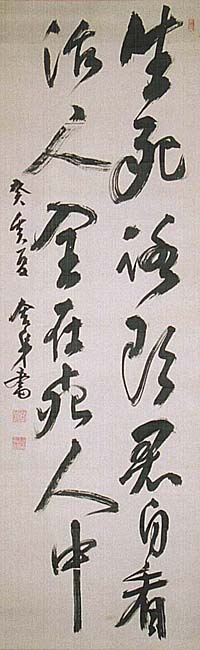 生死路頭君自看
活人全在死人中
癸亥夏 書